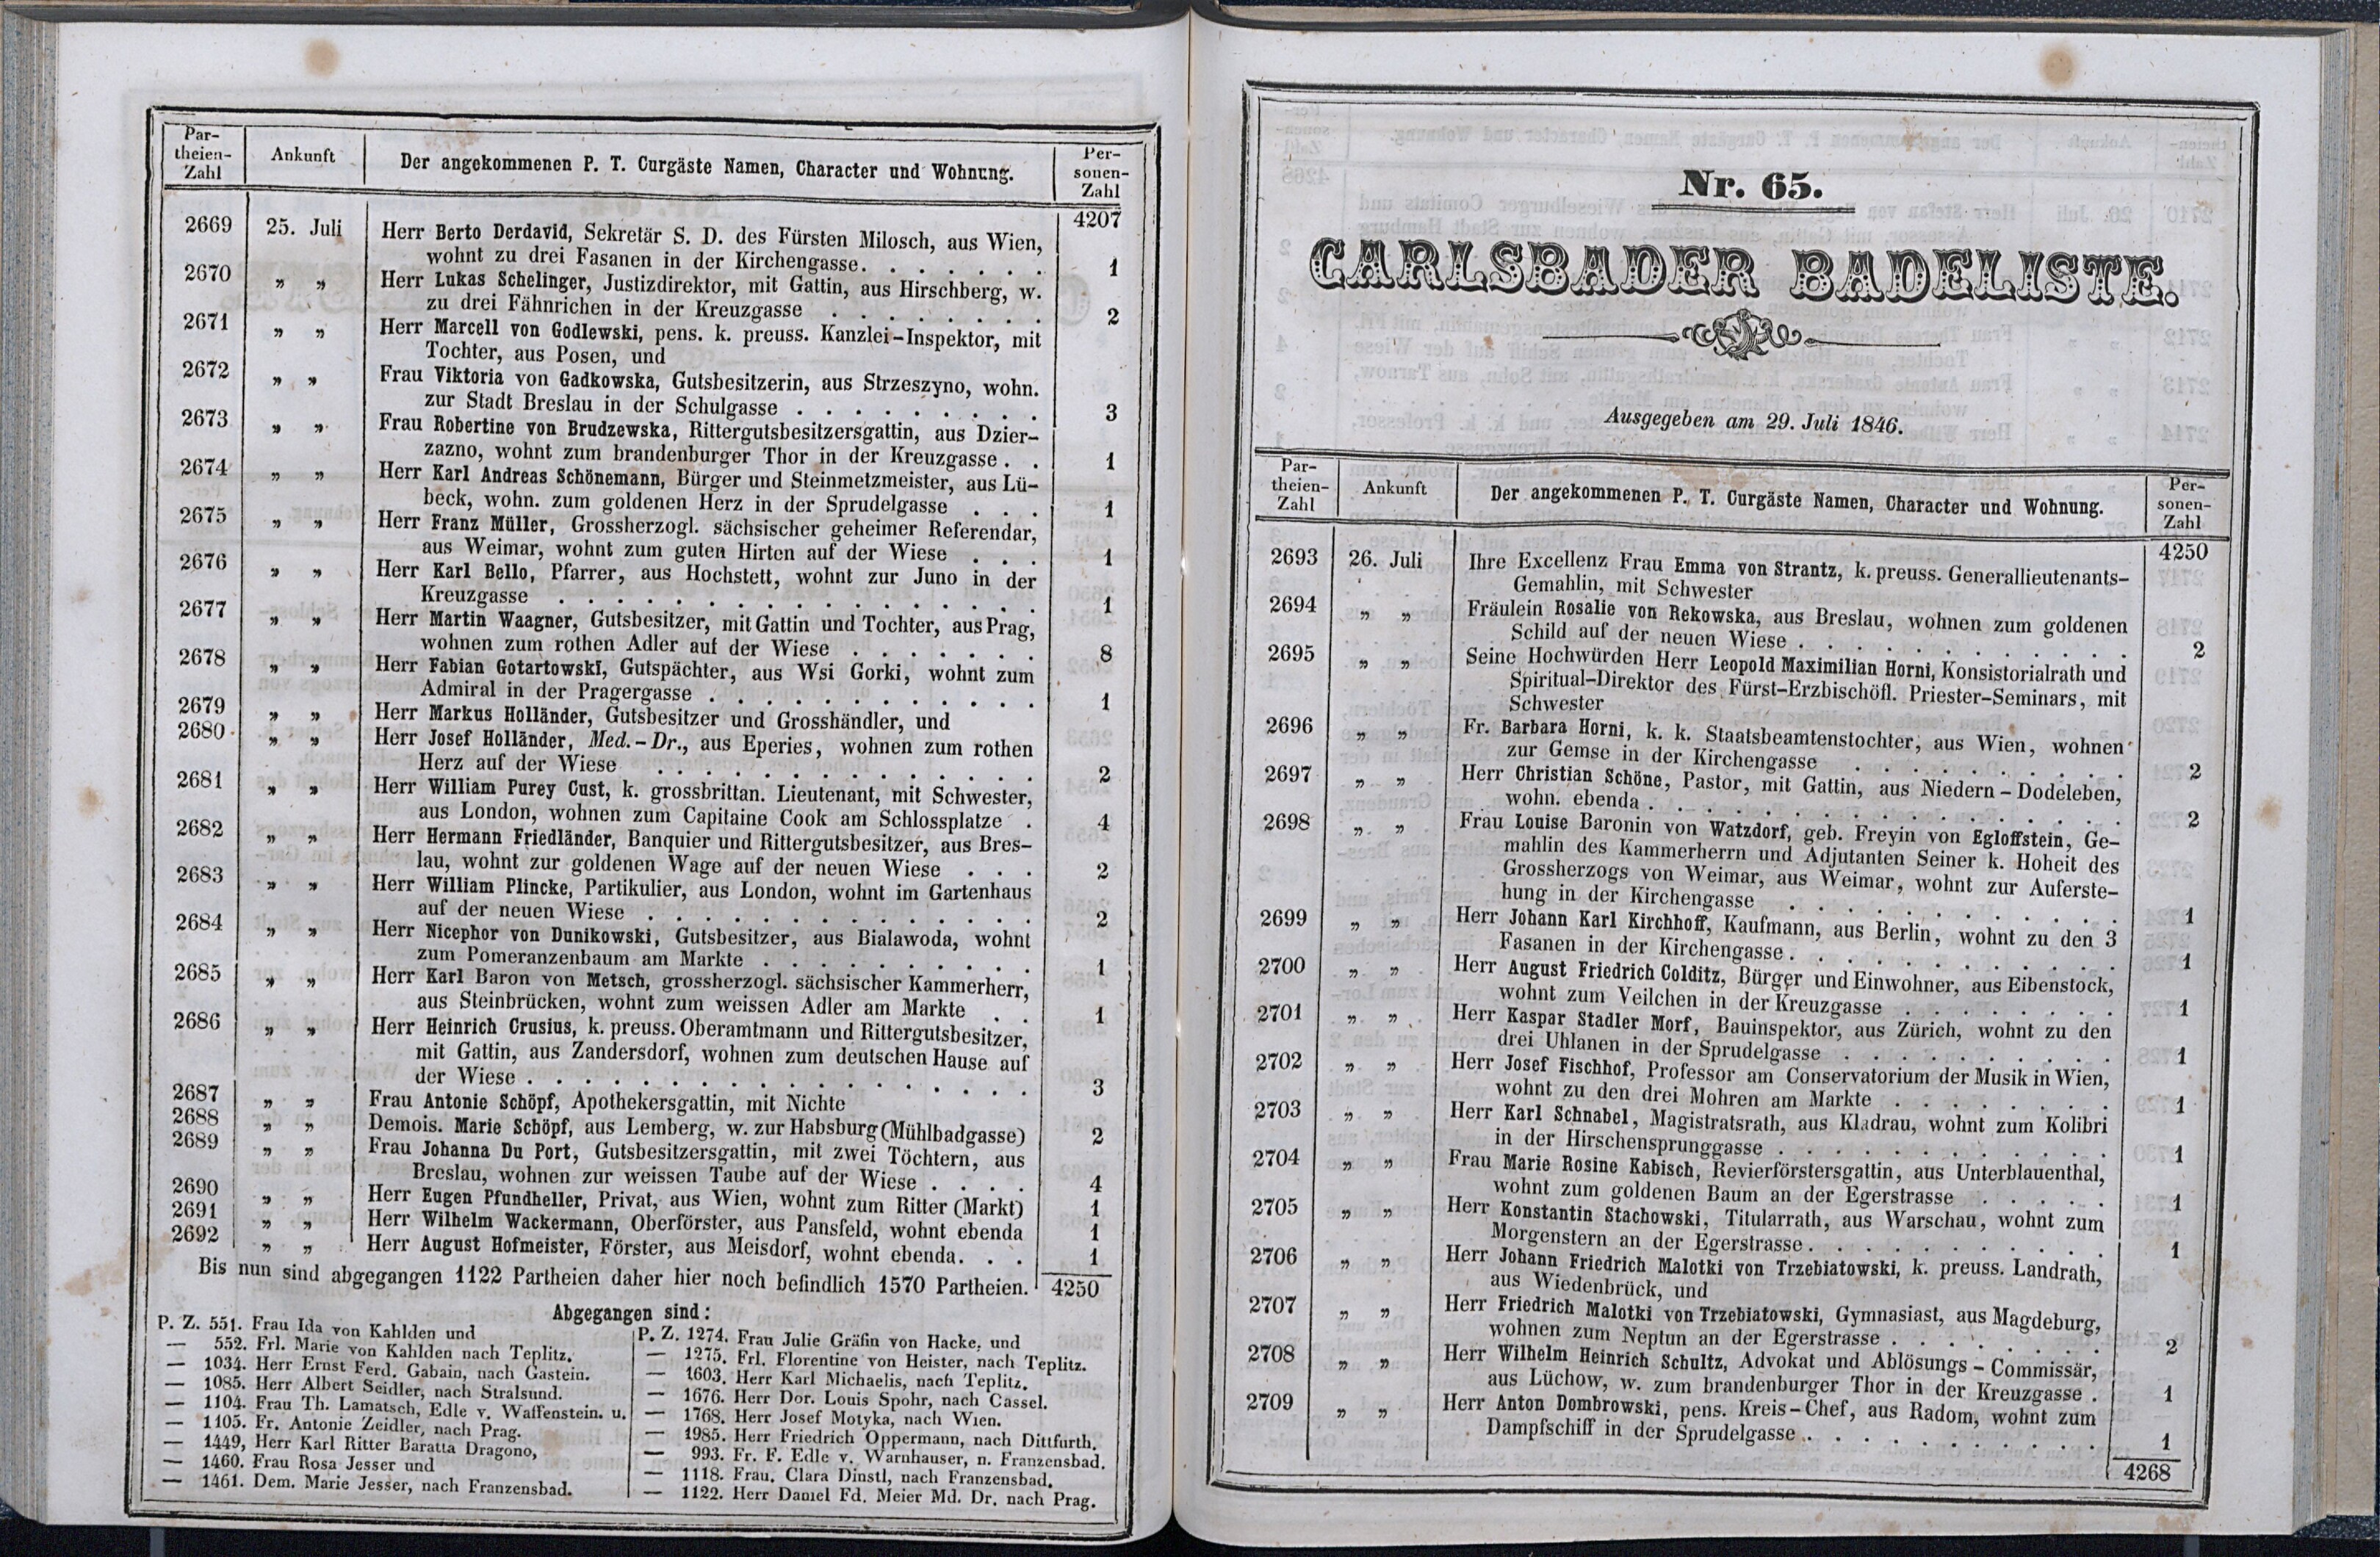 Par-
theien-
Zahl
Ankunft
Der angekommenen P. T. Curgäste Namen, Character und Wohnung.
Per-
sonen-
Zahl
4207
2669 25. Juli Herr Berto Derdavid, Sekretär S. D. des Fürsten Milosch, aus Wien,
wohnt zu drei Fasanen in der Kirchengasse. . . . . . . 1
2670 „ „ Herr Lukas Schelinger, Justizdirektor, mit Gattin, aus Hirschberg, w.
zu drei Fähnrichen in der Kreuzgasse . . . . . . . . 2
2671 „ „ Herr Marcell von Godlewski, pens. k. preuss. Kanzlei-Inspektor, mit
Tochter, aus Posen, und
2672 „ „ Frau Viktoria von Gadkowska, Gutsbesitzerin, aus Strzeszyno, wohn.
zur Stadt Breslau in der Schulgasse . . . . . . . . . 3
2673 „ „ Frau Robertine von Brudzewska, Rittergutsbesitzersgattin, aus Dzier-
zazno, wohnt zum brandenburger Thor in der Kreuzgasse . . 1
2674 „ „ Herr Karl Andreas Schönemann, Bürger und Steinmetzmeister, aus Lü-
beck, wohn. zum goldenen Herz in der Sprudelgasse . . . 1
2675 „ „ Herr Franz Müller, Grossherzogl. sächsischer geheimer Referendar,
aus Weimar, wohnt zum guten Hirten auf der Wiese . . . 1
2676 „ „ Herr Karl Bello, Pfarrer, aus Hochstett, wohnt zur Juno in der
Kreuzgasse . . . . . . . . . . . . . . . . 1
2677 „ „ Herr Martin Waagner, Gutsbesitzer, mit Gattin und Tochter, aus Prag,
wohnen zum rothen Adler auf der Wiese . . . . . . . 8
2678 „ „ Herr Fabian Gotartowski, Gutspächter, aus Wsi Gorki, wohnt zum
Admiral in der Pragergasse . . . . . . . . . . . . 1
2679 „ „ Herr Markus Holländer, Gutsbesitzer und Grosshändler, und
2680 „ „ Herr Josef Holländer, Med.-Dr., aus Eperies, wohnen zum rothen
Herz auf der Wiese . . . . . . . . . . . . . . 2
2681 „ „ Herr William Purey Cust, k. grossbrittan. Lieutenant, mit Schwester,
aus London, wohnen zum Capitaine Cook am Schlossplatze . 4
2682 „ „ Herr Hermann Friedländer, Banquier und Rittergutsbesitzer, aus Bres-
lau, wohnt zur goldenen Wage auf der neuen Wiese . . . 2
2683 „ „ Herr William Plincke, Partikulier, aus London, wohnt im Gartenhaus
auf der neuen Wiese . . . . . . . . . . . . . . 2
2684 „ „ Herr Nicephor von Dunikowski, Gutsbesitzer, aus Bialawoda, wohnt
zum Pomeranzenbaum am Markte . . . . . . . . . . 1
2685 „ „ Herr Karl Baron von Metsch, grossherzogl. sächsischer Kammerherr,
aus Steinbrücken, wohnt zum weissen Adler am Markte . . 1
2686 „ „ Herr Heinrich Crusius, k. preuss. Oberamtmann und Rittergutsbesitzer,
mit Gattin, aus Zandersdorf, wohnen zum deutschen Hause auf
der Wiese . . . . . . . . . . . . . . . . . . 3
2687 „ „ Frau Antonie Schöpf, Apothekersgattin, mit Nichte
2688 „ „ Demois. Marie Schöpf, aus Lemberg, w. zur Habsburg (Mühlbadgasse) 2
2689 „ „ Frau Johanna Du Port, Gutsbesitzersgattin, mit zwei Töchtern, aus
Breslau, wohnen zur weissen Taube auf der Wiese . . . . 4
2690 „ „ Herr Eugen Pfundheller, Privat, aus Wien, wohnt zum Ritter (Markt) 1
2691 „ „ Herr Wilhelm Wackermann, Oberförster, aus Pansfeld, wohnt ebenda 1
2692 „ „ Herr August Hofmeister, Förster, aus Meisdorf, wohnt ebenda. . . 1
Bis nun sind abgegangen 1122 Partheien daher hier noch befindlich 1570 Partheien. 4250
Abgegangen sind:
P. Z. 551. Frau Ida von Kahlden und
— 552. Frl. Marie von Kahlden nach Teplitz.
— 1034. Herr Ernst Ferd. Gabain, nach Gastein.
— 1085. Herr Albert Seidler, nach Stralsund.
— 1104. Frau Th. Lamatsch, Edle v. Waffenstein. u.
— 1105. Fr. Antonie Zeidler, nach Prag.
— 1449, Herr Karl Ritter Baratta Dragono,
— 1460. Frau Rosa Jesser und
— 1461. Dem. Marie Jesser, nach Franzensbad.
P. Z. 1274. Frau Julie Gräfin von Hacke, und
— 1275. Frl. Florentine von Heister, nach Teplitz.
— 1603. Herr Karl Michaelis, nach Teplitz.
— 1676. Herr Dor. Louis Spohr, nach Cassel.
— 1768. Herr Josef Motyka, nach Wien.
— 1985. Herr Friedrich Oppermann, nach Dittfurth.
— 993. Fr. F. Edle v. Warnhauser, n. Franzensbad.
— 1118. Frau. Clara Dinstl, nach Franzensbad.
— 1122. Herr Daniel Fd. Meier Md. Dr. nach Prag.
Nr. 65.
CARLSBADER BADELISTE.
Ausgegeben am 29. Juli 1846.
Par-
theien-
Zahl
Ankunft
Der angekommenen P. T. Curgäste Namen, Character und Wohnung.
Per-
sonen-
Zahl
4250
2693 26. Juli Ihre Excellenz Frau Emma von Strantz, k. preuss. Generallieutenants-
Gemahlin, mit Schwester
2694 „ „ Fräulein Rosalie von Rekowska, aus Breslau, wohnen zum goldenen
Schild auf der neuen Wiese . . . . . . . . . . . . 2
2695 „ „ Seine Hochwürden Herr Leopold Maximilian Horni, Konsistorialrath und
Spiritual-Direktor des Fürst-Erzbischöfl. Priester-Seminars, mit
Schwester
2696 „ „ Fr. Barbara Horni, k. k. Staatsbeamtenstochter, aus Wien, wohnen
zur Gemse in der Kirchengasse . . . . . . . . . . 2
2697 „ „ Herr Christian Schöne, Pastor, mit Gattin, aus Niedern-Dodeleben,
wohn. ebenda . . . . . . . . . . . . . . . . . 2
2698 „ „ Frau Louise Baronin von Watzdorf, geb. Freyin von Egloffstein, Ge-
mahlin des Kammerherrn und Adjutanten Seiner k. Hoheit des
Grossherzogs von Weimar, aus Weimar, wohnt zur Auferste-
hung in der Kirchengasse . . . . . . . . . . . . 1
2699 „ „ Herr Johann Karl Kirchhoff, Kaufmann, aus Berlin, wohnt zu den 3
Fasanen in der Kirchengasse . . . . . . . . . . . . 1
2700 „ „ Herr August Friedrich Colditz, Bürger und Einwohner, aus Eibenstock,
wohnt zum Veilchen in der Kreuzgasse . . . . . . . . 1
2701 „ „ Herr Kaspar Stadler Morf, Bauinspektor, aus Zürich, wohnt zu den
drei Uhlanen in der Sprudelgasse . . . . . . . . . . 1
2702 „ „ Herr Josef Fischhof, Professor am Conservatorium der Musik in Wien,
wohnt zu den drei Mohren am Markte . . . . . . . . 1
2703 „ „ Herr Karl Schnabel, Magistratsrath, aus Kladrau, wohnt zum Kolibri
in der Hirschensprunggasse . . . . . . . . . . . . 1
2704 „ „ Frau Marie Rosine Kabisch, Revierförstersgattin, aus Unterblauenthal,
wohnt zum goldenen Baum an der Egerstrasse . . . . . 1
2705 „ „ Herr Konstantin Stachowski, Titularrath, aus Warschau, wohnt zum
Morgenstern an der Egerstrasse . . . . . . . . . . . 1
2706 „ „ Herr Johann Friedrich Malotki von Trzebiatowski, k. preuss. Landrath,
aus Wiedenbrück, und
2707 „ „ Herr Friedrich Malotki von Trzebiatowski, Gymnasiast, aus Magdeburg,
wohnen zum Neptun an der Egerstrasse . . . . . . . . 2
2708 „ „ Herr Wilhelm Heinrich Schultz, Advokat und Ablösungs-Commissär,
aus Lüchow, w. zum brandenburger Thor in der Kreuzgasse . 1
2709 „ „ Herr Anton Dombrowski, pens. Kreis-Chef, aus Radom, wohnt zum
Dampfschiff in der Sprudelgasse . . . . . . . . . . . 1
4268